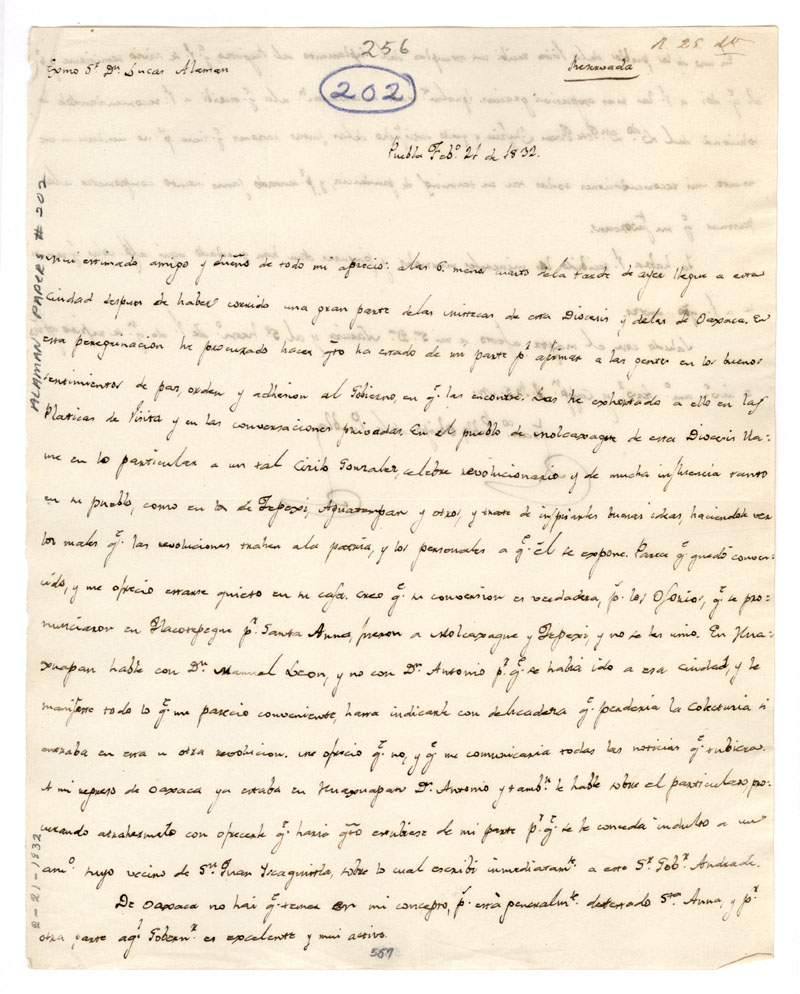 256
R. 25 do
Exmo Sr. Dn. Lucas Alaman
Reservada
202
Puebla Febo. 21 de 1832.
ALAMAN PAPERS # 202
Mui estimado, amigo y dueño de todo mi aprecio: a las 6. menos cuarto dela tarde de ayer llegue a esta
Ciudad despues de haber corrido una gran parte delas mistecas de esta Diocesis y delas de Oaxaca. En
esta peregrinación he procurado hacer qto ha estado de mi parte pa. afirmar a las gentes en los buenos
sentimientos de pas, orden y adhesion al Gobierno, en qe. las encontre. Las he exhortado a ello en las
Platicas de Visita y en las conversaciones privadas. En el pueblo de Molcaxaque de esta Diocesis lla-
me en lo particular a un tal Cirilo Gonzalez, celebre revolucionario y de mucha influencia tanto
en su pueblo, como en los de Tepexi, Aguatempan y otros, y trate de inspirarles buenas ideas, haciendole ver
los males qe. las revoluciones trahen ala patria, y los personales a qe. él se expone. Parece qe. quedó conven-
cido, y me ofrecio estarse quieto en su casa. Creo qe. su conversion es verdadera, ps. los Osorios, qe. se pro-
nunciaron en Tlacotepeque pr. Santa Anna, fueron a Molcaxaque y Tepexi, y no se les unio. En Hua-
xuapan hable con Dn. Manuel Leon, y no con Dn. Antonio pr. qe. se habia ido a esa Ciudad, y le
manifeste todo lo qe. me parecio conveniente, hasta indicarle con delicadeza qe. perderia la Colecturia si
entraba en esta u otra revolucion. Me ofrecio qe. no, y qe. me comunicaria todas las noticias qe. tubiera.
A mi regreso de Oaxaca ya estaba en Huaxuapan Dn. Antonio y tambn. le hable sobre el particular, pro-
curando atraherlo con ofrecerle qe. haria qto estubiese de mi parte pa. qe. se le conceda indulto a un
amo. suyo vecino de Sn. Juan Ixcaquistla, sobre lo cual escribi inmediatamte. a este Sr. Gobr. Andrade.
De Oaxaca no hai qe. temer en mi concepto, ps. está generalmte. detestado Sta. Anna, y pr.
otra parte aql. Gobernr. es excelente y mui activo.
2-21-1832
567